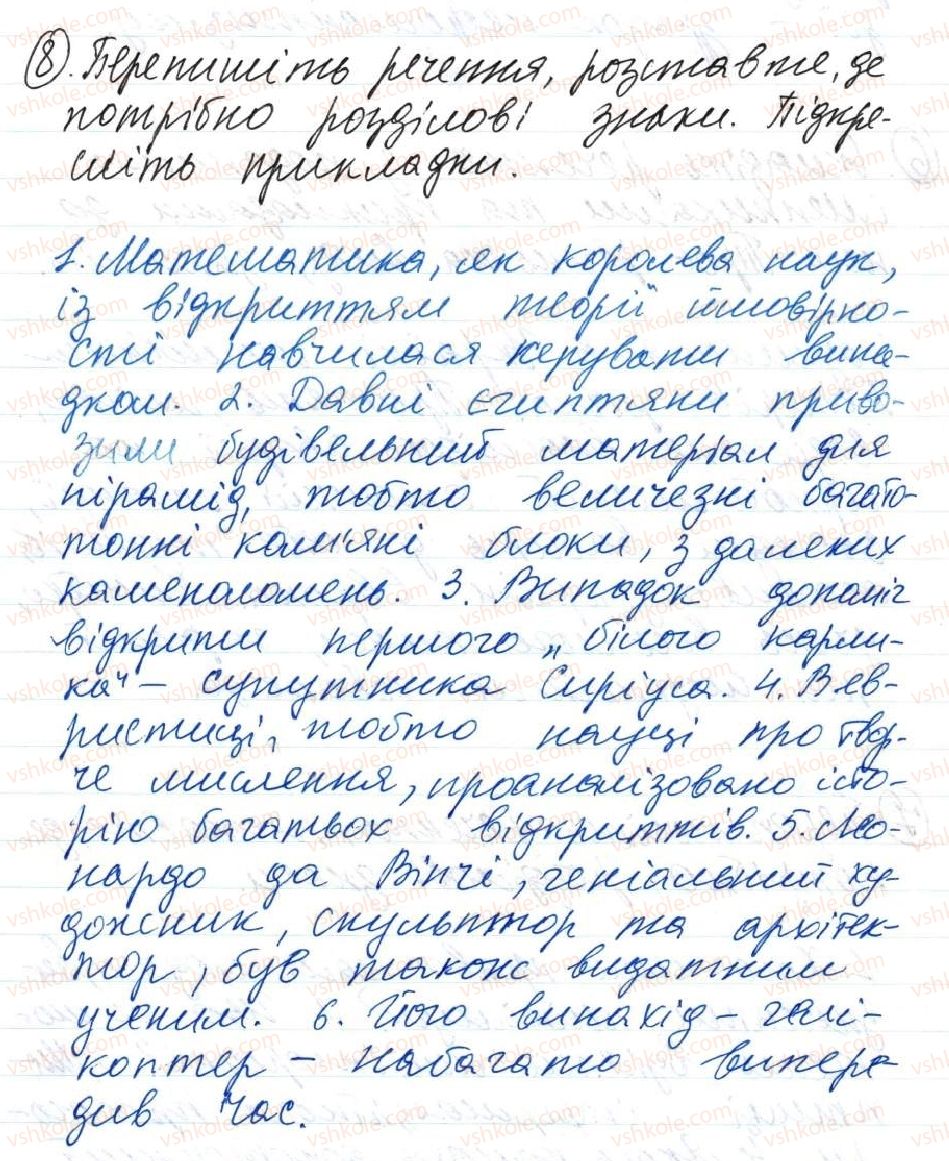 8. Перепишіть речення, розставте, де
потрібно розділові знаки. Підкре-
сліть прикладки.
1. Математика, як королева наук,
із відкриттям теорії ймовірно-
сті навчилася керувати випа-
дком. 2. Давні єгиптяни приво-
зили будівельний матеріал для
пірамід, тобто величезні багато-
тонні кам'яні блоки, з далеких
каменоломень. 3. Випадок допоміг
відкрити першого „білого карли-
ка" – супутника Сиріуса. 4. В ев-
ристиці, тобто науці про твор-
че мислення, проаналізовано істо-
рію багатьох відкриттів. 5. Лео-
нардо да Вінчі, геніальний ху-
дожник, скульптор та архітек-
тор, був також видатним
ученим. 6. Його винахід – гелі-
коптер – набагато випере-
див час.